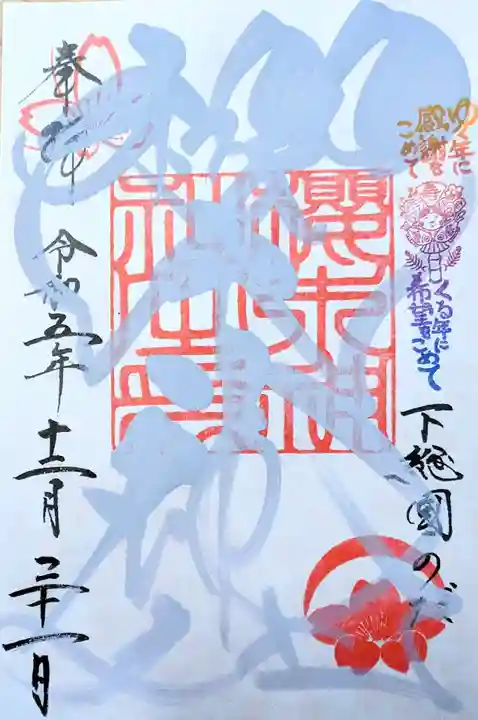 ゆく年に
感謝を
こめて
くる年に
希望をこめて
下総國のだ
櫻木神社
奉拝 令和五年 十二月 三十一日